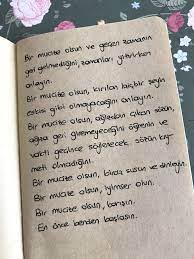 Bir mucize olsun ve geçen zamanın
geri gelmediğini, zamanları yitirirken
anlayın.
Bir mucize olsun, kırılan hiçbir şeyin
eskisi gibi olmayacağını anlayın.
Bir mucize olsun, ağızdan çıkan sözün,
ağıza geri giremeyeceğini öğrenin ve
vakti gelince söylenecek, sözün kıy-
meti olmadığını.
Bir mucize olsun, biraz susun ve dinleyin.
Bir mucize olsun, iyimser olun.
Bir mucize olsun, barışın.
En önce benden başlasın.